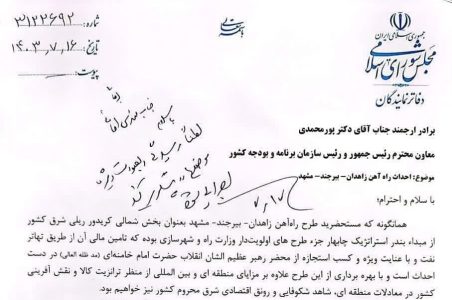 باسمه تعالی
جمهوری اسلامی ایران
مجلس شورای اسلامی
دفاتر نمایندگان
شماره: ۳۱۲۲۶۹۲
تاریخ: ۱۴۰۳,۷,۱۶
پیوست:
با سلام
لطفاً
موضوع
۷,۱۷
برادر ارجمند جناب آقای دکتر پورمحمدی
معاون محترم رئیس جمهور و رئیس سازمان برنامه و بودجه کشور
موضوع: احداث راه آهن زاهدان- بیرجند- مشهد
با سلام و احترام؛
همانگونه که مستحضرید طرح راه‌آهن زاهدان- بیرجند- مشهد بعنوان بخش شمالی کریدور ریلی شرق کشور
از مبداء بندر استراتژیک چابهار جزء طرح های اولویت‌دار وزارت راه و شهرسازی بوده که تامین مالی آن از طریق تهاتر
نفت و با عنایت ویژه و کسب استجازه از محضر رهبر عظیم الشان انقلاب حضرت امام خامنه‌ای (مد ظله العالی) در دست
احداث است و با بهره برداری از این طرح علاوه بر مزایای منطقه ای و بین المللی از منظر ترانزیت کالا و نقش آفرینی
کشور در معادلات منطقه ای، شاهد شکوفایی و رونق اقتصادی شرق محروم کشور نیز خواهیم بود.